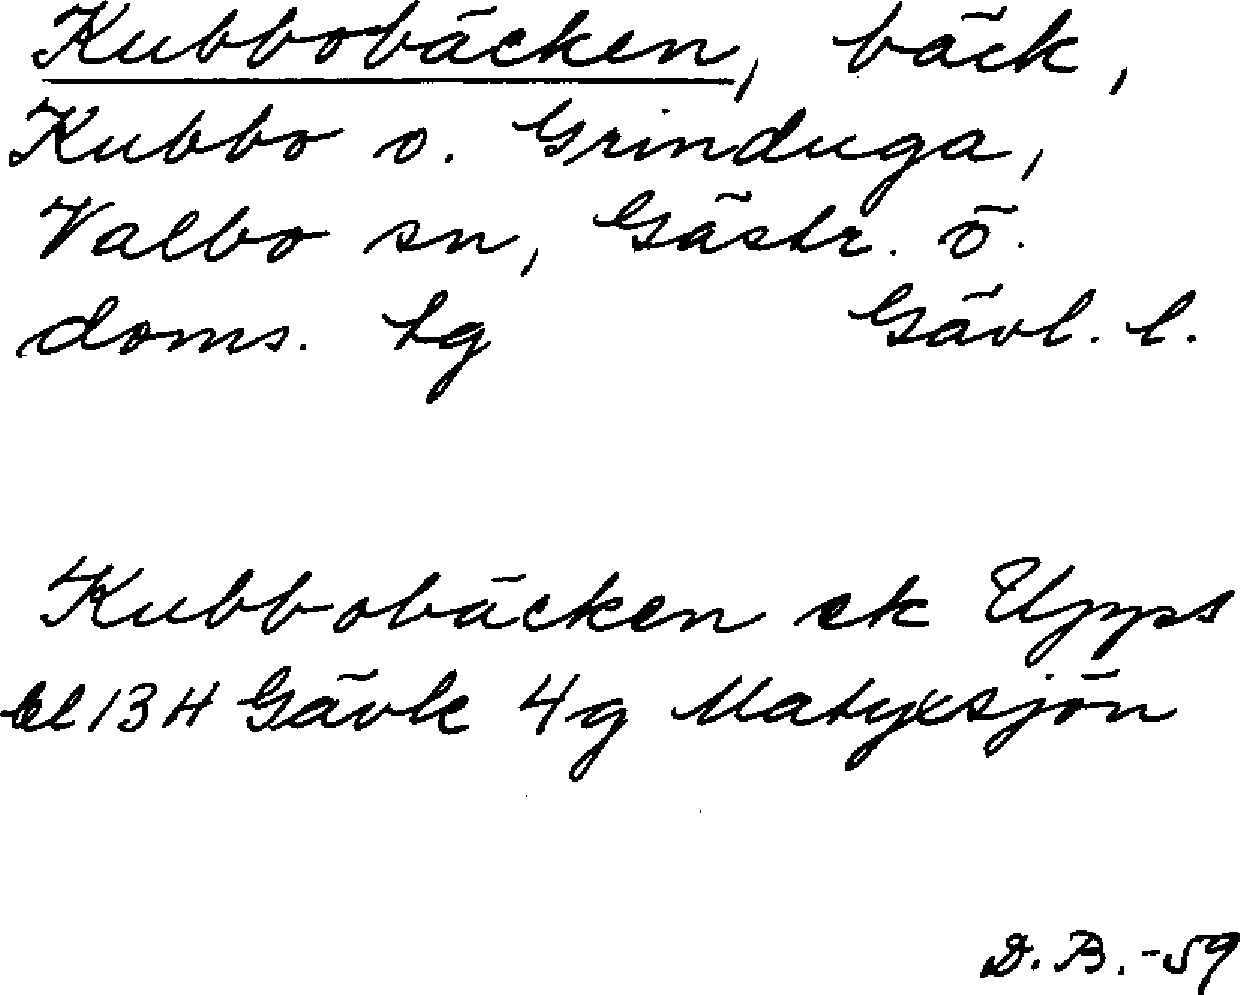 Kubbobäcken, bäck,
Kubbo o. Grinduga,
Valbo sn, Gästr. ö.
doms. tg Gävl. l.
Kubbobäcken ek Upps
bl 13 H Gävle 4g Matyxsjön
D. B. -59